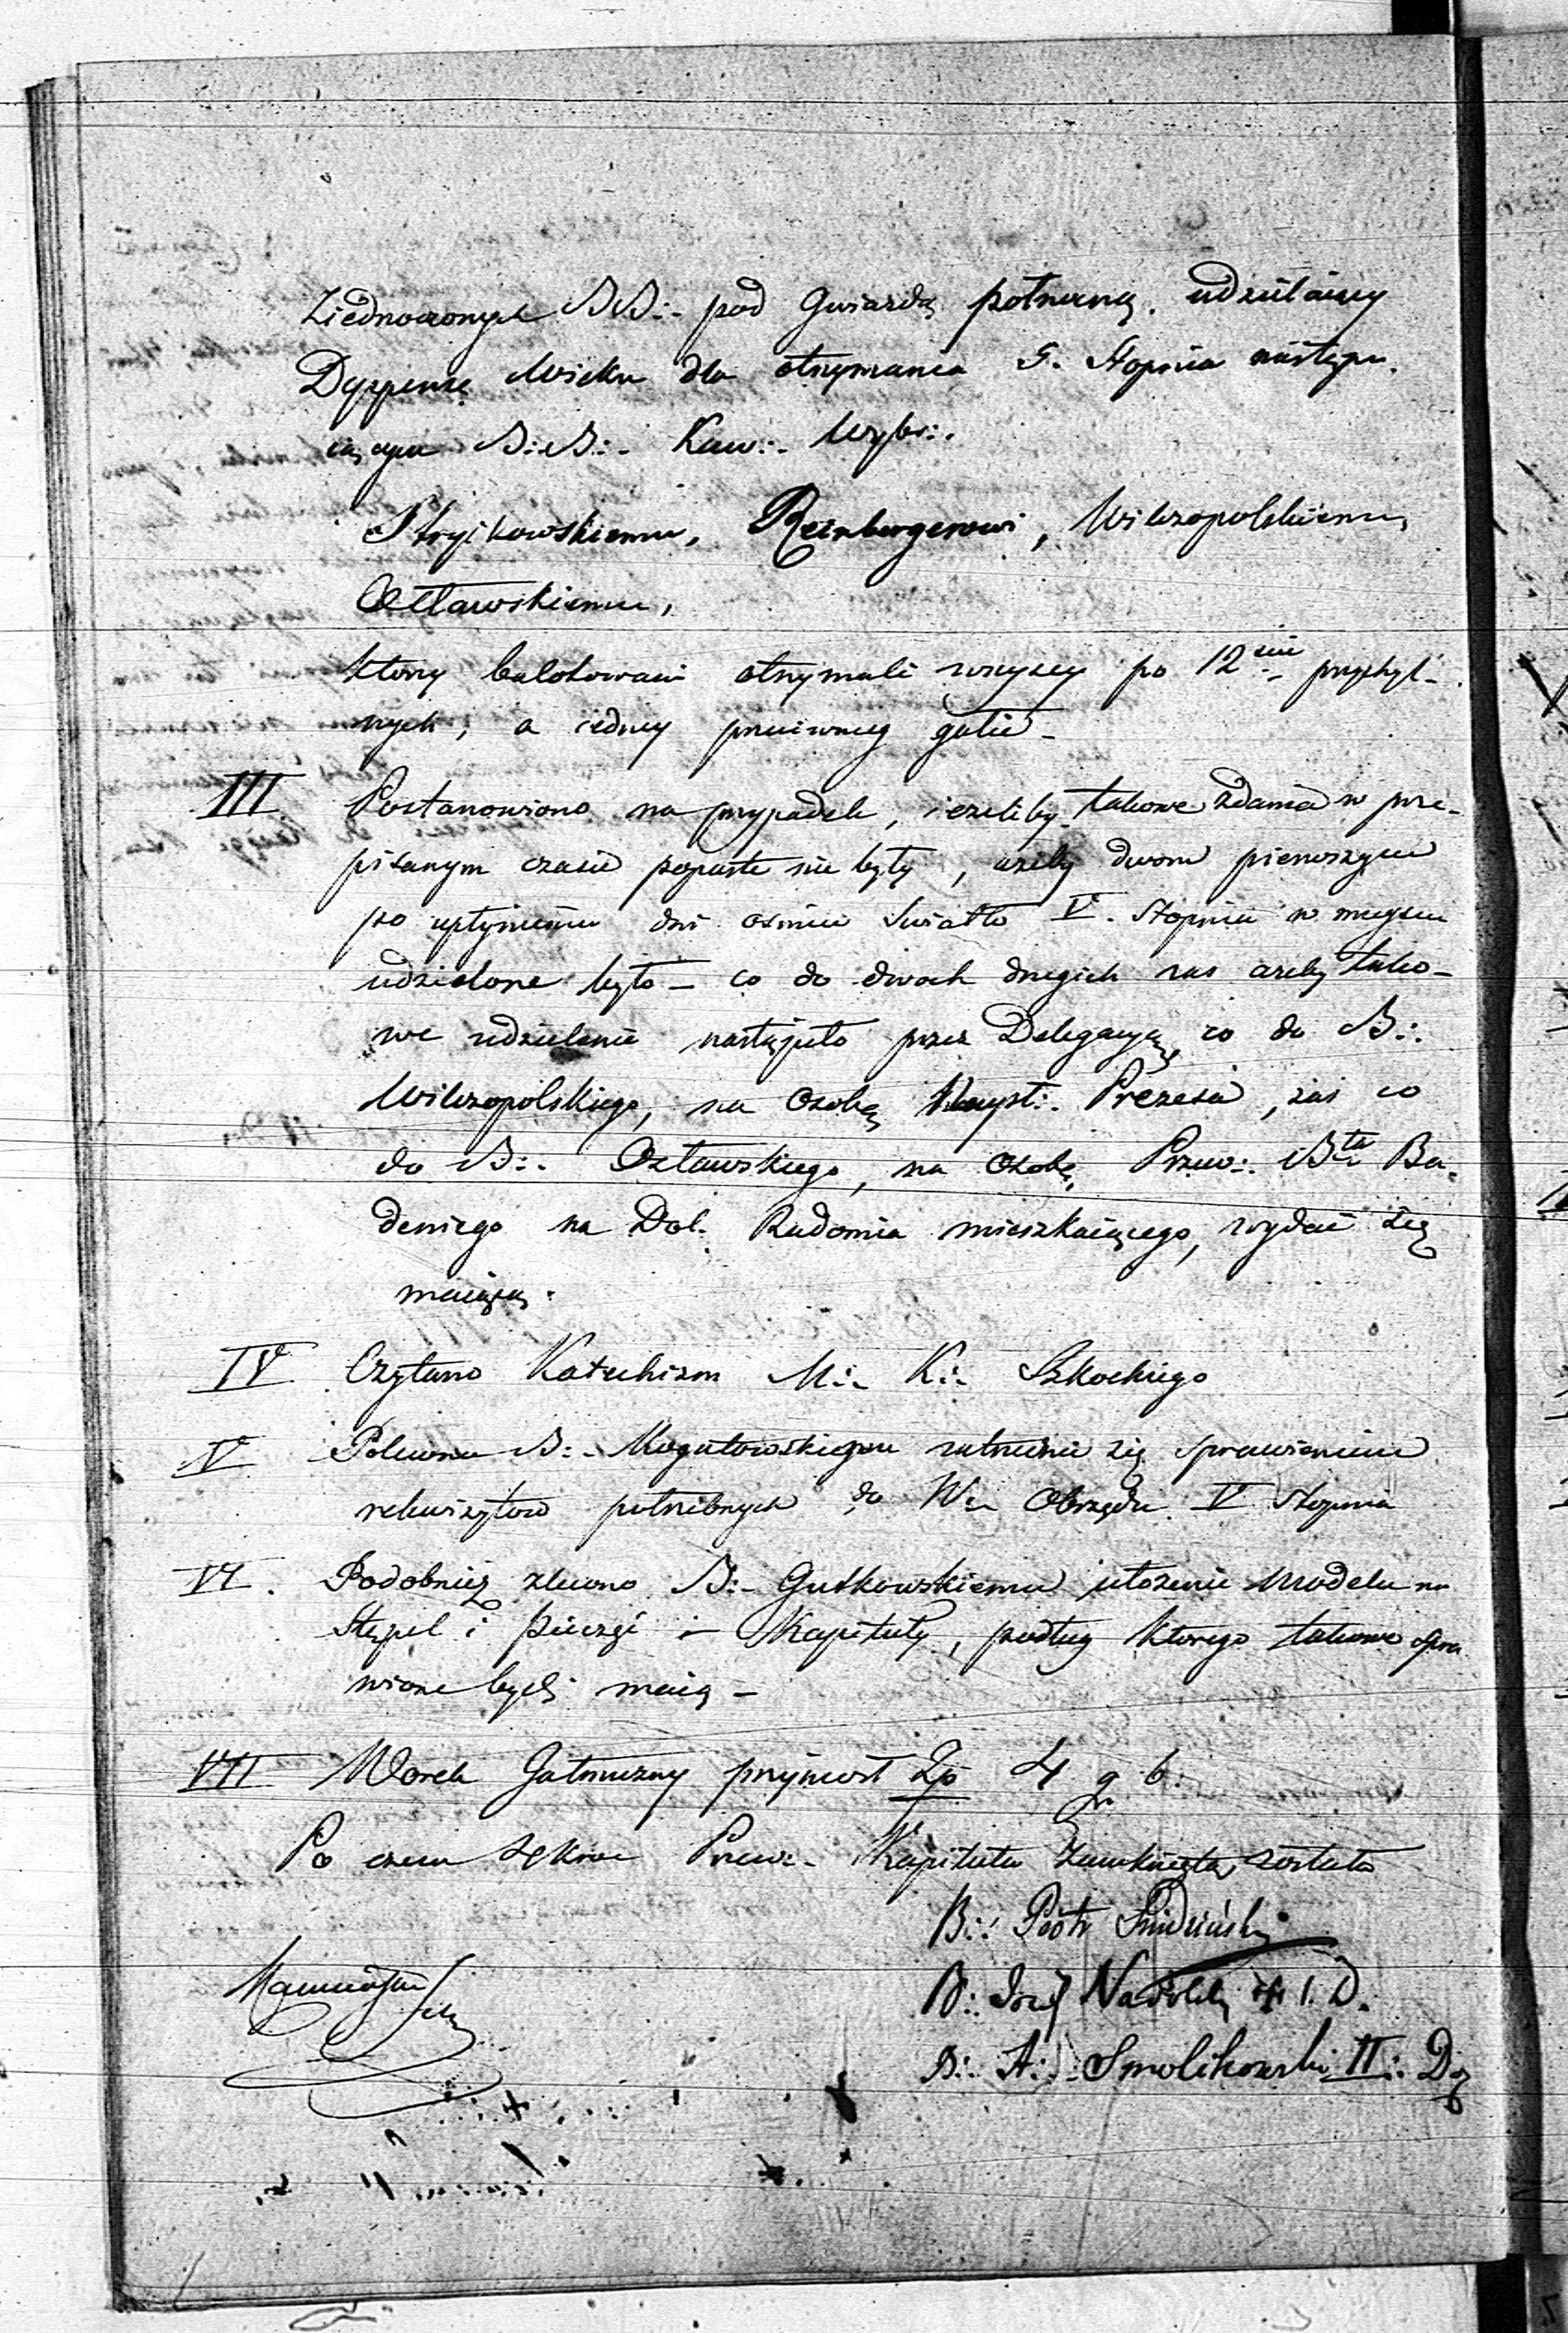 Ziednoczonych BB∴ pod Gwiazdą północną, udzielaiący
Dyspensę Wieku dla otrzymania 5. Stopnia następu-
iącym B∴B∴ Kaw∴ Wybr∴
Stryikowskiemu, Reinbergerowi, Wilczopolskiemu,
Ozławskiemu,
ktorzy balotowani otrzymali wszyscy po 12 przychyl-
nych, a iedney przeciwney gałce -
III Postanowiono na przypadek, ieżeliby takowe zdania w prze-
pisanym czasie poparte nie były, ażeby dwom pierwszym
po upłynieniu dni ośmiu Swiatło V. Stopnia w mieyscu
udzielone było - co do dwoch drugich zas ażeby tako-
we udzielenie nastąpiło przez Delegacyą, co do B∴
Wilczopolskiego, na Osobę Prezesa, zaś co
do B∴ Ozławskiego, na Osobę Przew∴ Bta Ba-
deniego na Dol. Radomia mieszkaiącego, wydać się
maiącą.
IV Czytano Katechizm M∴ K∴ Szkockiego
V Polecono B∴ zatrudnić się sprawieniem
rekwizytow potrzebnych do W∴ Obrzędu V Stopnia
VI. Podobnież zlecono B∴ Gutkowskiemu ułożenie Modelu na
Stępel i pieczęć Kapituły, podług ktorego takowe spra
wione bydź maią -
VII Worek Jałmużny przyniosł Zp 4 g 6.
Po czem Przew∴ Kapituła Zamknięta została
B∴ Piotr
B∴ Jozef Nadolski I. D.
B∴ A∴ Smolikowski II∴ Dz